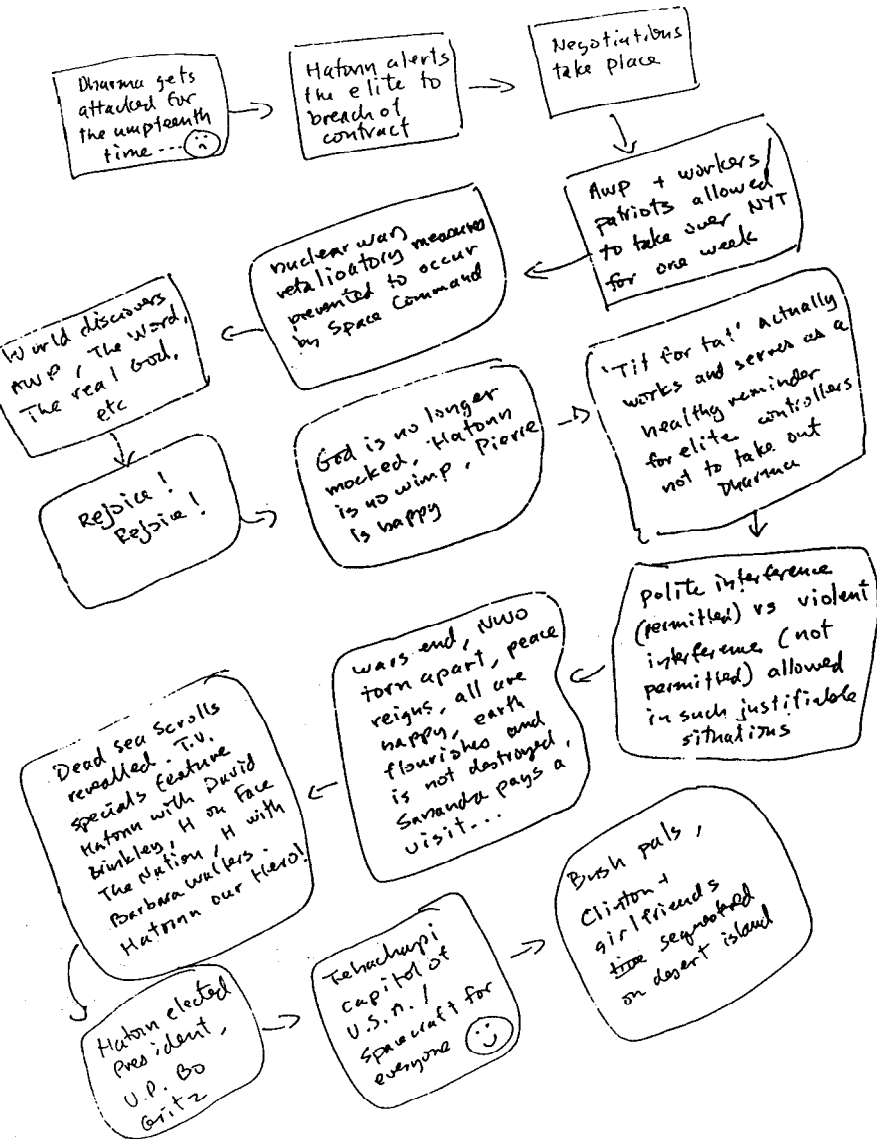 Dharma gets
attacked for
the umpteenth
time ---
Hatonn alerts
the elite to
breach of
contract
Negotiations
take place
AWP + workers/
patriots allowed
to take over NYT
for one week
nuclear war,
retaliatory measures
prevented to occur
by Space Command
World discovers
AWP, The Word,
The real God,
etc
Rejoice!
Rejoice!
God is no longer
mocked, Hatonn
is no wimp, Pierre
is happy
'Tit for tat' actually
works and serves as a
healthy reminder
for elite controllers
not to take out
Dharma
polite interference
(permitted) vs violent
interference (not
permitted) allowed
in such justifiable
situations
wars end, NWO
torn apart, peace
reigns, all are
happy, earth
flourishes and
is not destroyed,
Sananda pays a
visit...
Dead sea scrolls
revealled. T.V.
specials feature
Hatonn with David
Brinkley, H on Face
The Nation, H with
Barbara Walters.
Hatonn our Hero!
Hatonn elected
President,
V.P. Bo
Gritz
Tehachapi
capitol of
U.S.A./
spacecraft for
everyone
Bush pals,
Clinton +
girlfriends
sequestered
on desert island